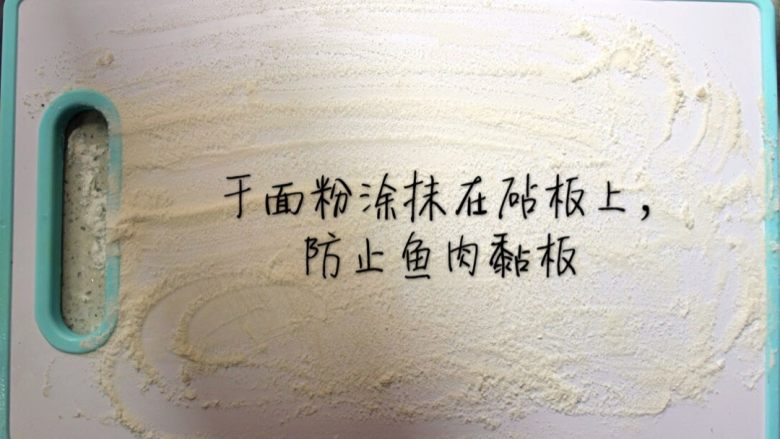 于面粉涂抹在砧板上，
防止鱼肉黏板